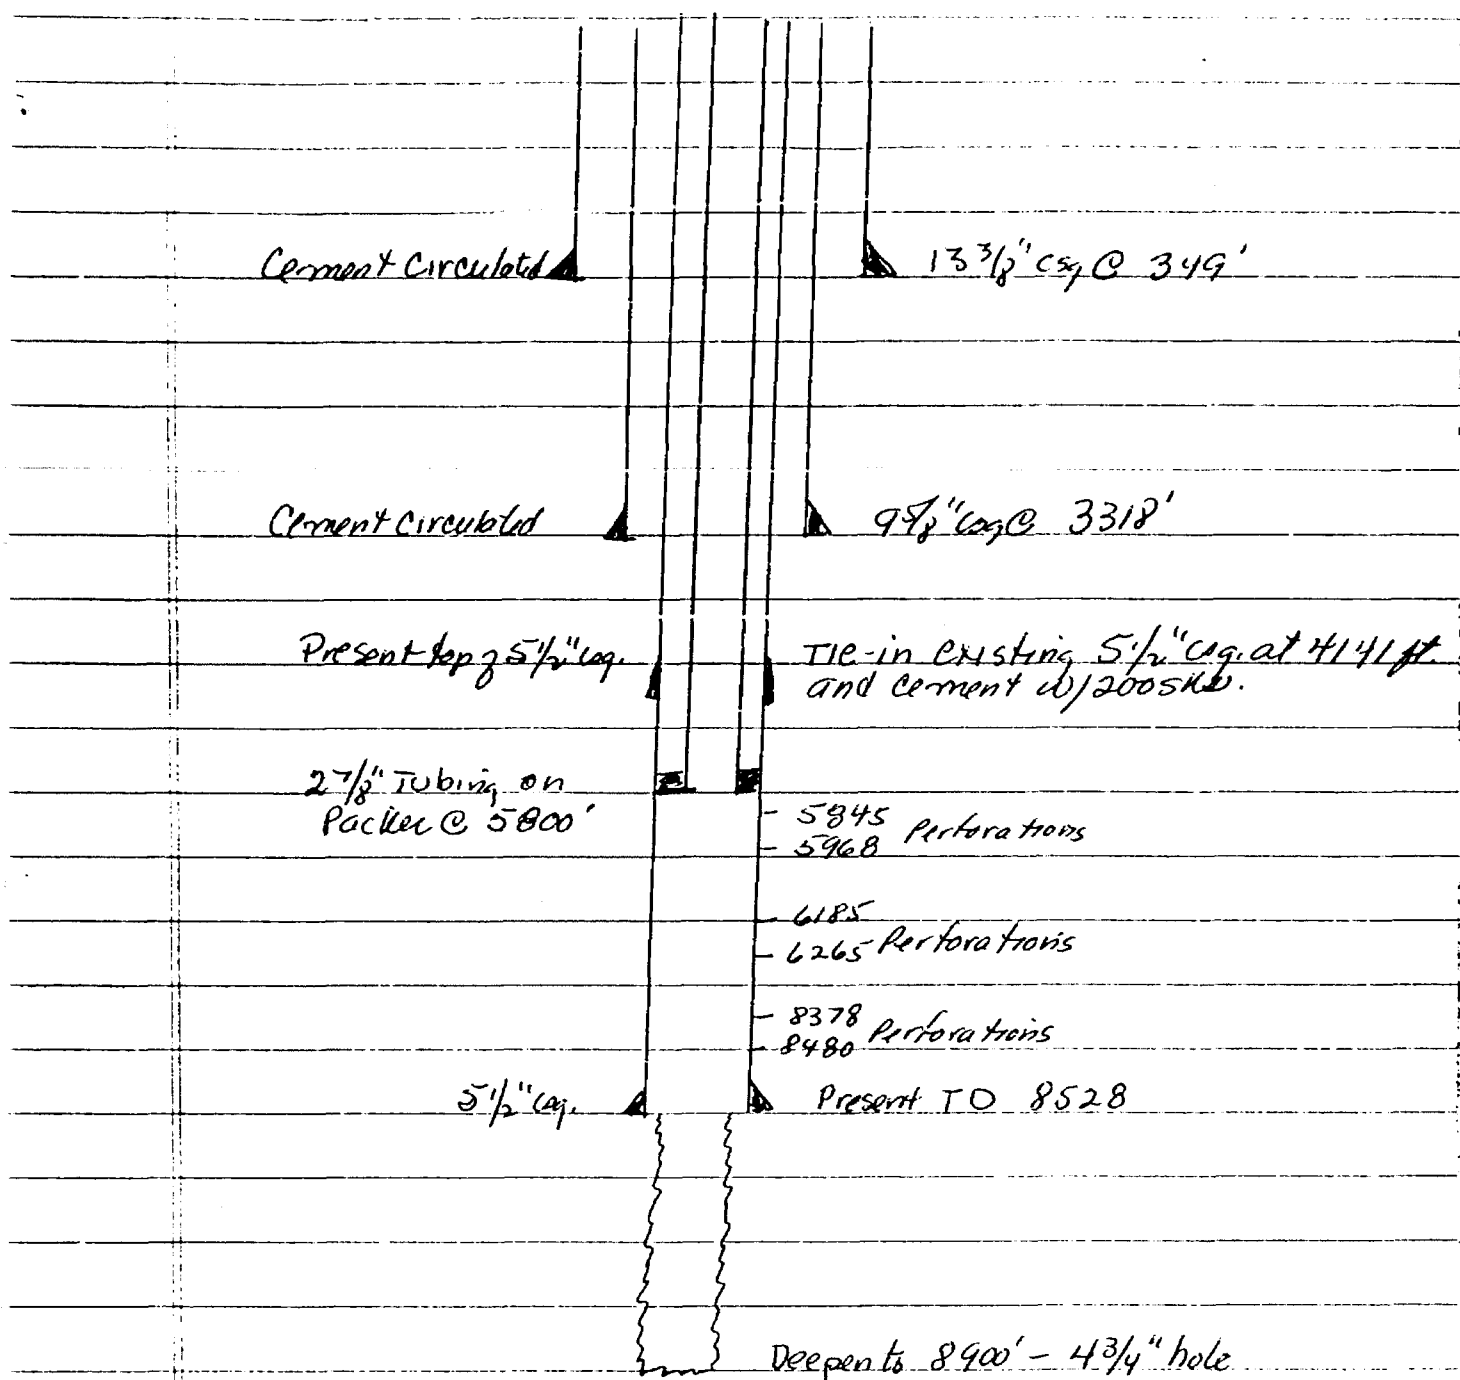 Cement Circulated
13 3/8" csg @ 349'
Cement Circulated
9 5/8" csg @ 3318'
Present top of 5 1/2" csg.
Tie-in existing 5 1/2" csg. at 4141 ft.
and cement w/200 sks.
2 7/8" Tubing on
Packer @ 5800'
5845
5968 Perforations
6185
6265 Perforations
8378
8480 Perforations
5 1/2" csg.
Present TD 8528
Deepen to 8900' - 4 3/4" hole